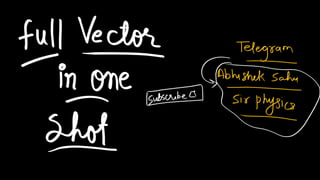 full Vector
in one
Shot
Subscribe
Telegram
Abhishek Sahu
Sir physics